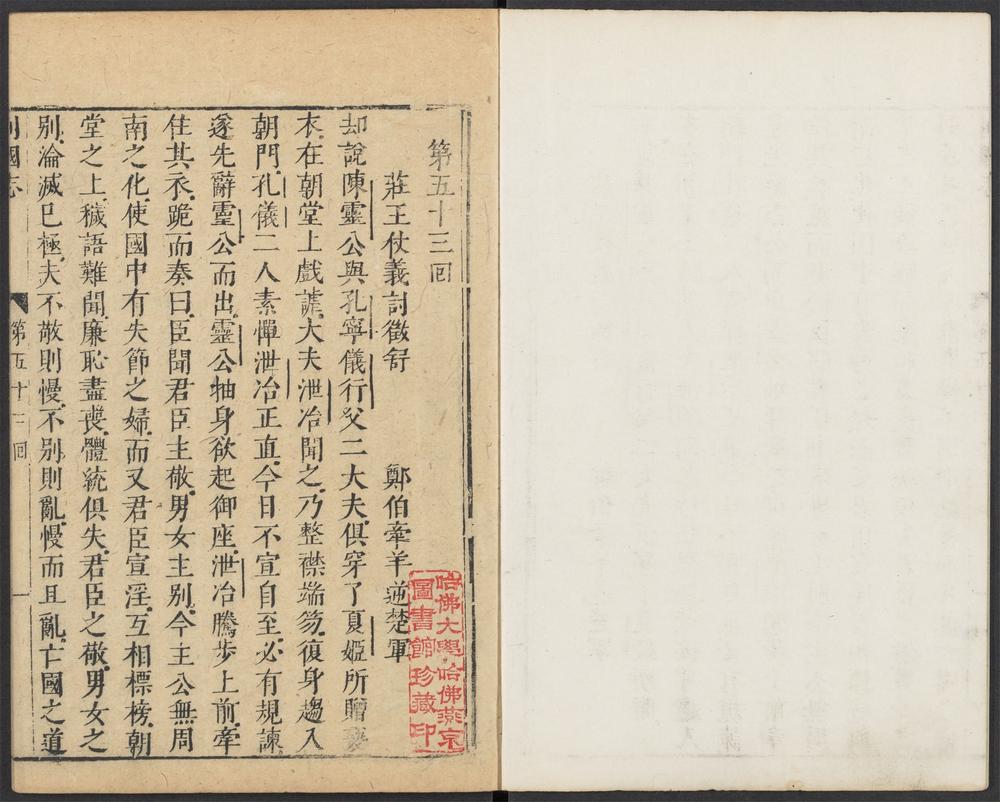 第五十三回
莊王仗義討徵舒　鄭伯牽羊逆楚軍
却說陳靈公與孔寧儀行父二大夫俱穿了夏姬所贈褻
衣在朝堂上戲謔大夫泄冶聞之乃整襟端笏復身趨入
朝門孔儀二人素憚泄冶正直今日不宣自至必有規諫
遂先辭靈公而出靈公抽身欲起御座泄冶騰步上前牽
住其衣跪而奏曰臣聞君臣主敬男女主別今主公無周
南之化使國中有失節之婦而又君臣宣淫互相標榜朝
堂之上穢語難聞廉恥盡喪體統俱失君臣之敬男女之
別淪滅已極夫不敬則慢不別則亂慢而且亂亡國之道
列國志　第五十三回　一
哈佛大學哈佛燕京
圖書館珍藏印